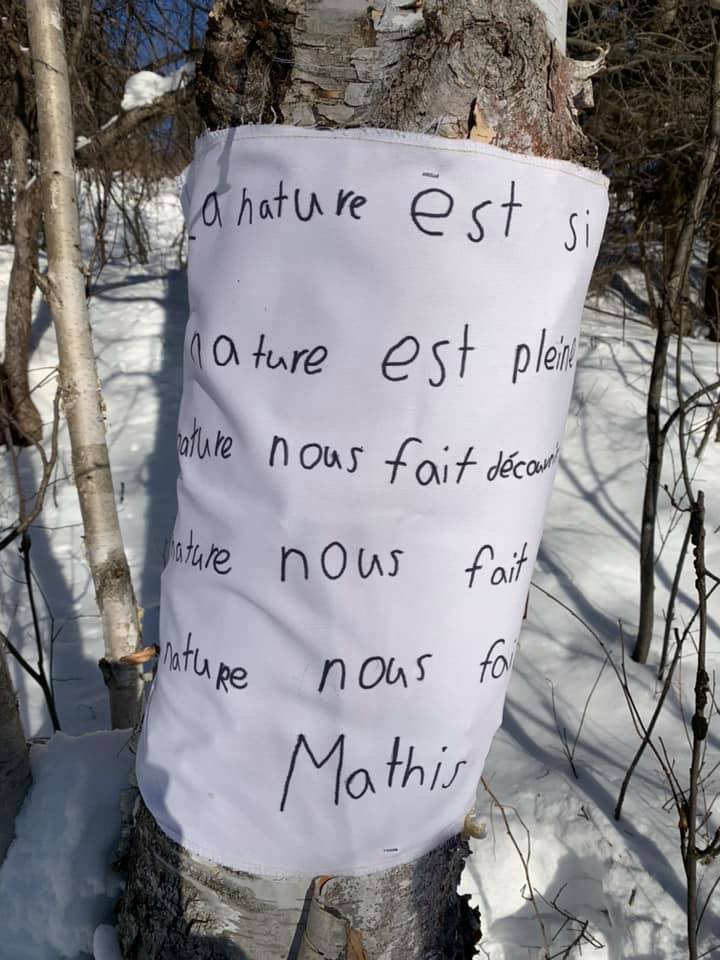 La nature est si
nature est pleine
nature nous fait
nature nous fait
nature nous fait
Mathis